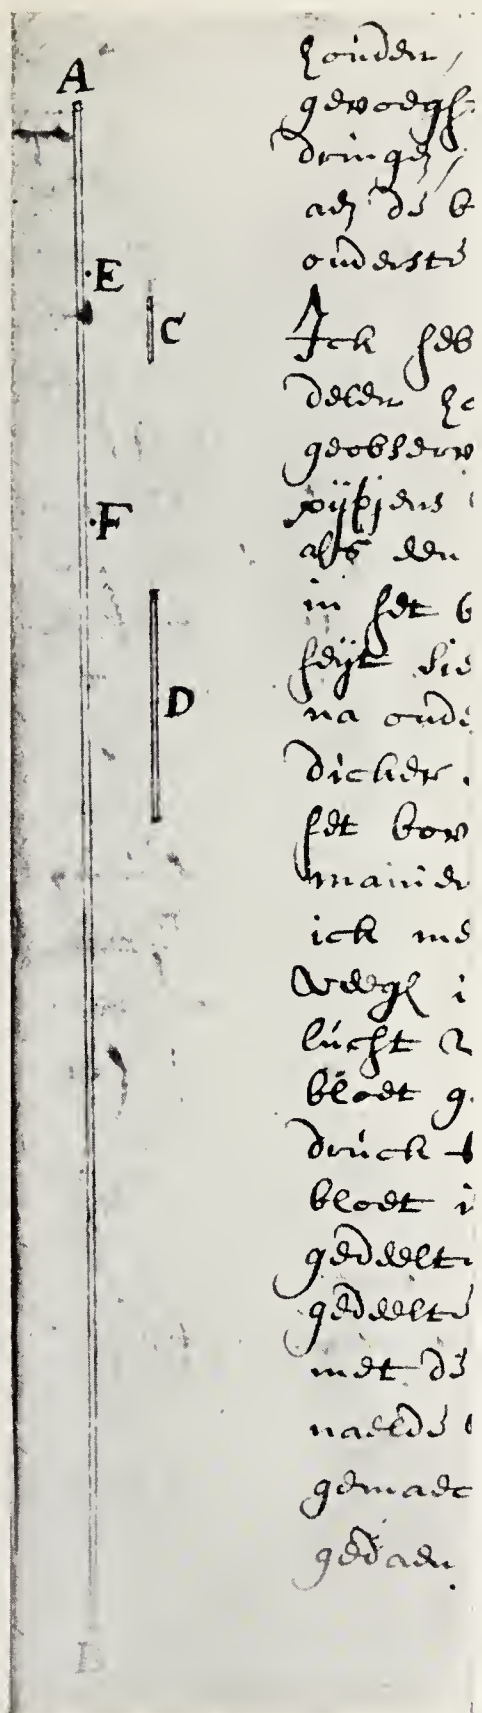 A
E
C
F
D
B
houden,
gevoegh
dringen,
aen de b
onderste
Ick heb
delen
geobserv
pijpjens
als een
in het b
heijt sie
na onde
dicker.
het bov
manier
ick me
weegh i
lucht
bloet g
druck
bloet i
gedeelt
gedeelte
met de
naelde
gemaec
gedaen.